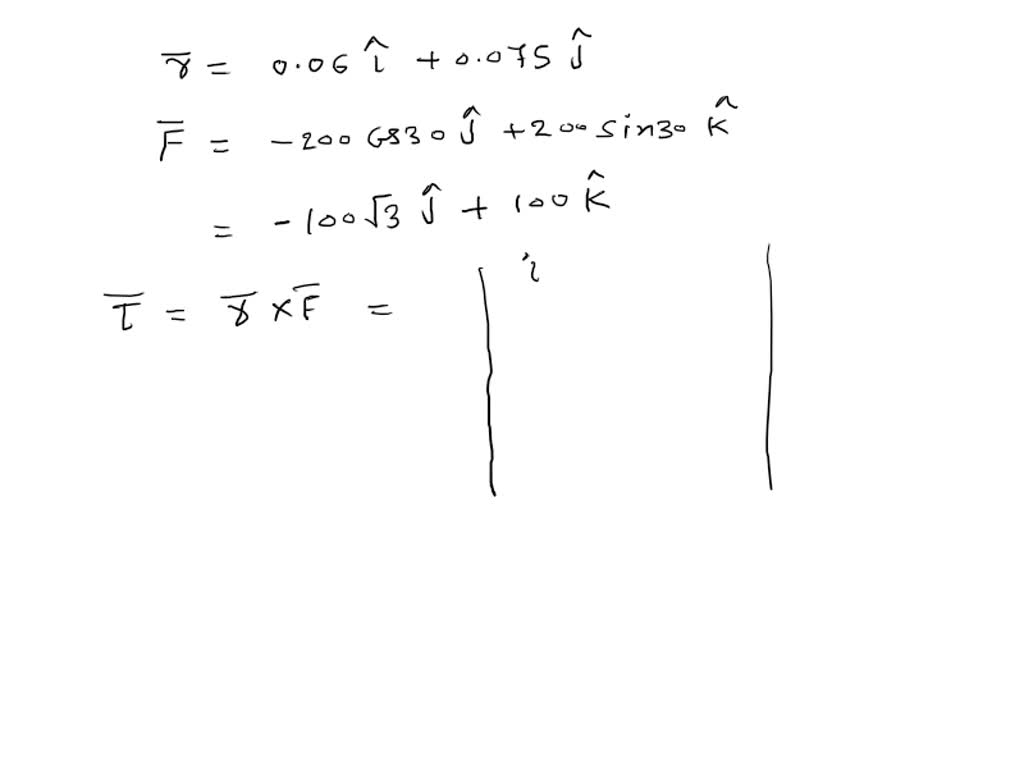 r̅ = 0.06 î + 0.075 ĵ
F̅ = -200 cos30 ĵ + 200 sin30 k̂
= -100√3 ĵ + 100 k̂
τ̅ = r̅ × F̅ = | i |